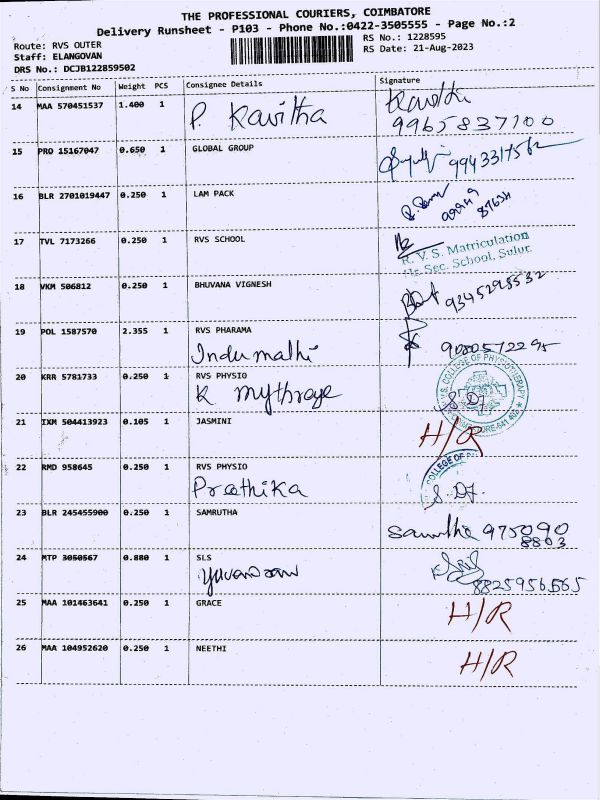 THE PROFESSIONAL COURIERS, COIMBATORE
Delivery Runsheet - P103 - Phone No.:0422-3505555 - Page No.:2
Route: RVS OUTER
Staff: ELANGOVAN
DRS No.: DCJB122859502
RS No.: 1228595
RS Date: 21-Aug-2023
S No Consignment No Weight PCS Consignee Details Signature
14 MAA 570451537 1.400 1 P. Kavitha Kavitha
9965837100
15 PRO 15167047 0.650 1 GLOBAL GROUP
16 BLR 2701019447 0.250 1 LAM PACK
17 TVL 7173266 0.250 1 RVS SCHOOL
R. V. S. Matriculation
Hr. Sec. School, Sulur.
18 VKM 506812 0.250 1 BHUVANA VIGNESH 9345298532
19 POL 1587570 2.355 1 RVS PHARAMA
Indumathi 9080572295
20 KRR 5781733 0.250 1 RVS PHYSIO
K mythraye
COLLEGE OF PHYSIOTHERAPY
21 IXM 504413923 0.105 1 JASMINI H/R
22 RMD 958645 0.250 1 RVS PHYSIO
Preethika
COLLEGE OF
23 BLR 245455900 0.250 1 SAMRUTHA 975090
8803
24 MTP 3050567 0.880 1 SLS
8825956565
25 MAA 101463641 0.250 1 GRACE H/R
26 MAA 104952620 0.250 1 NEETHI H/R